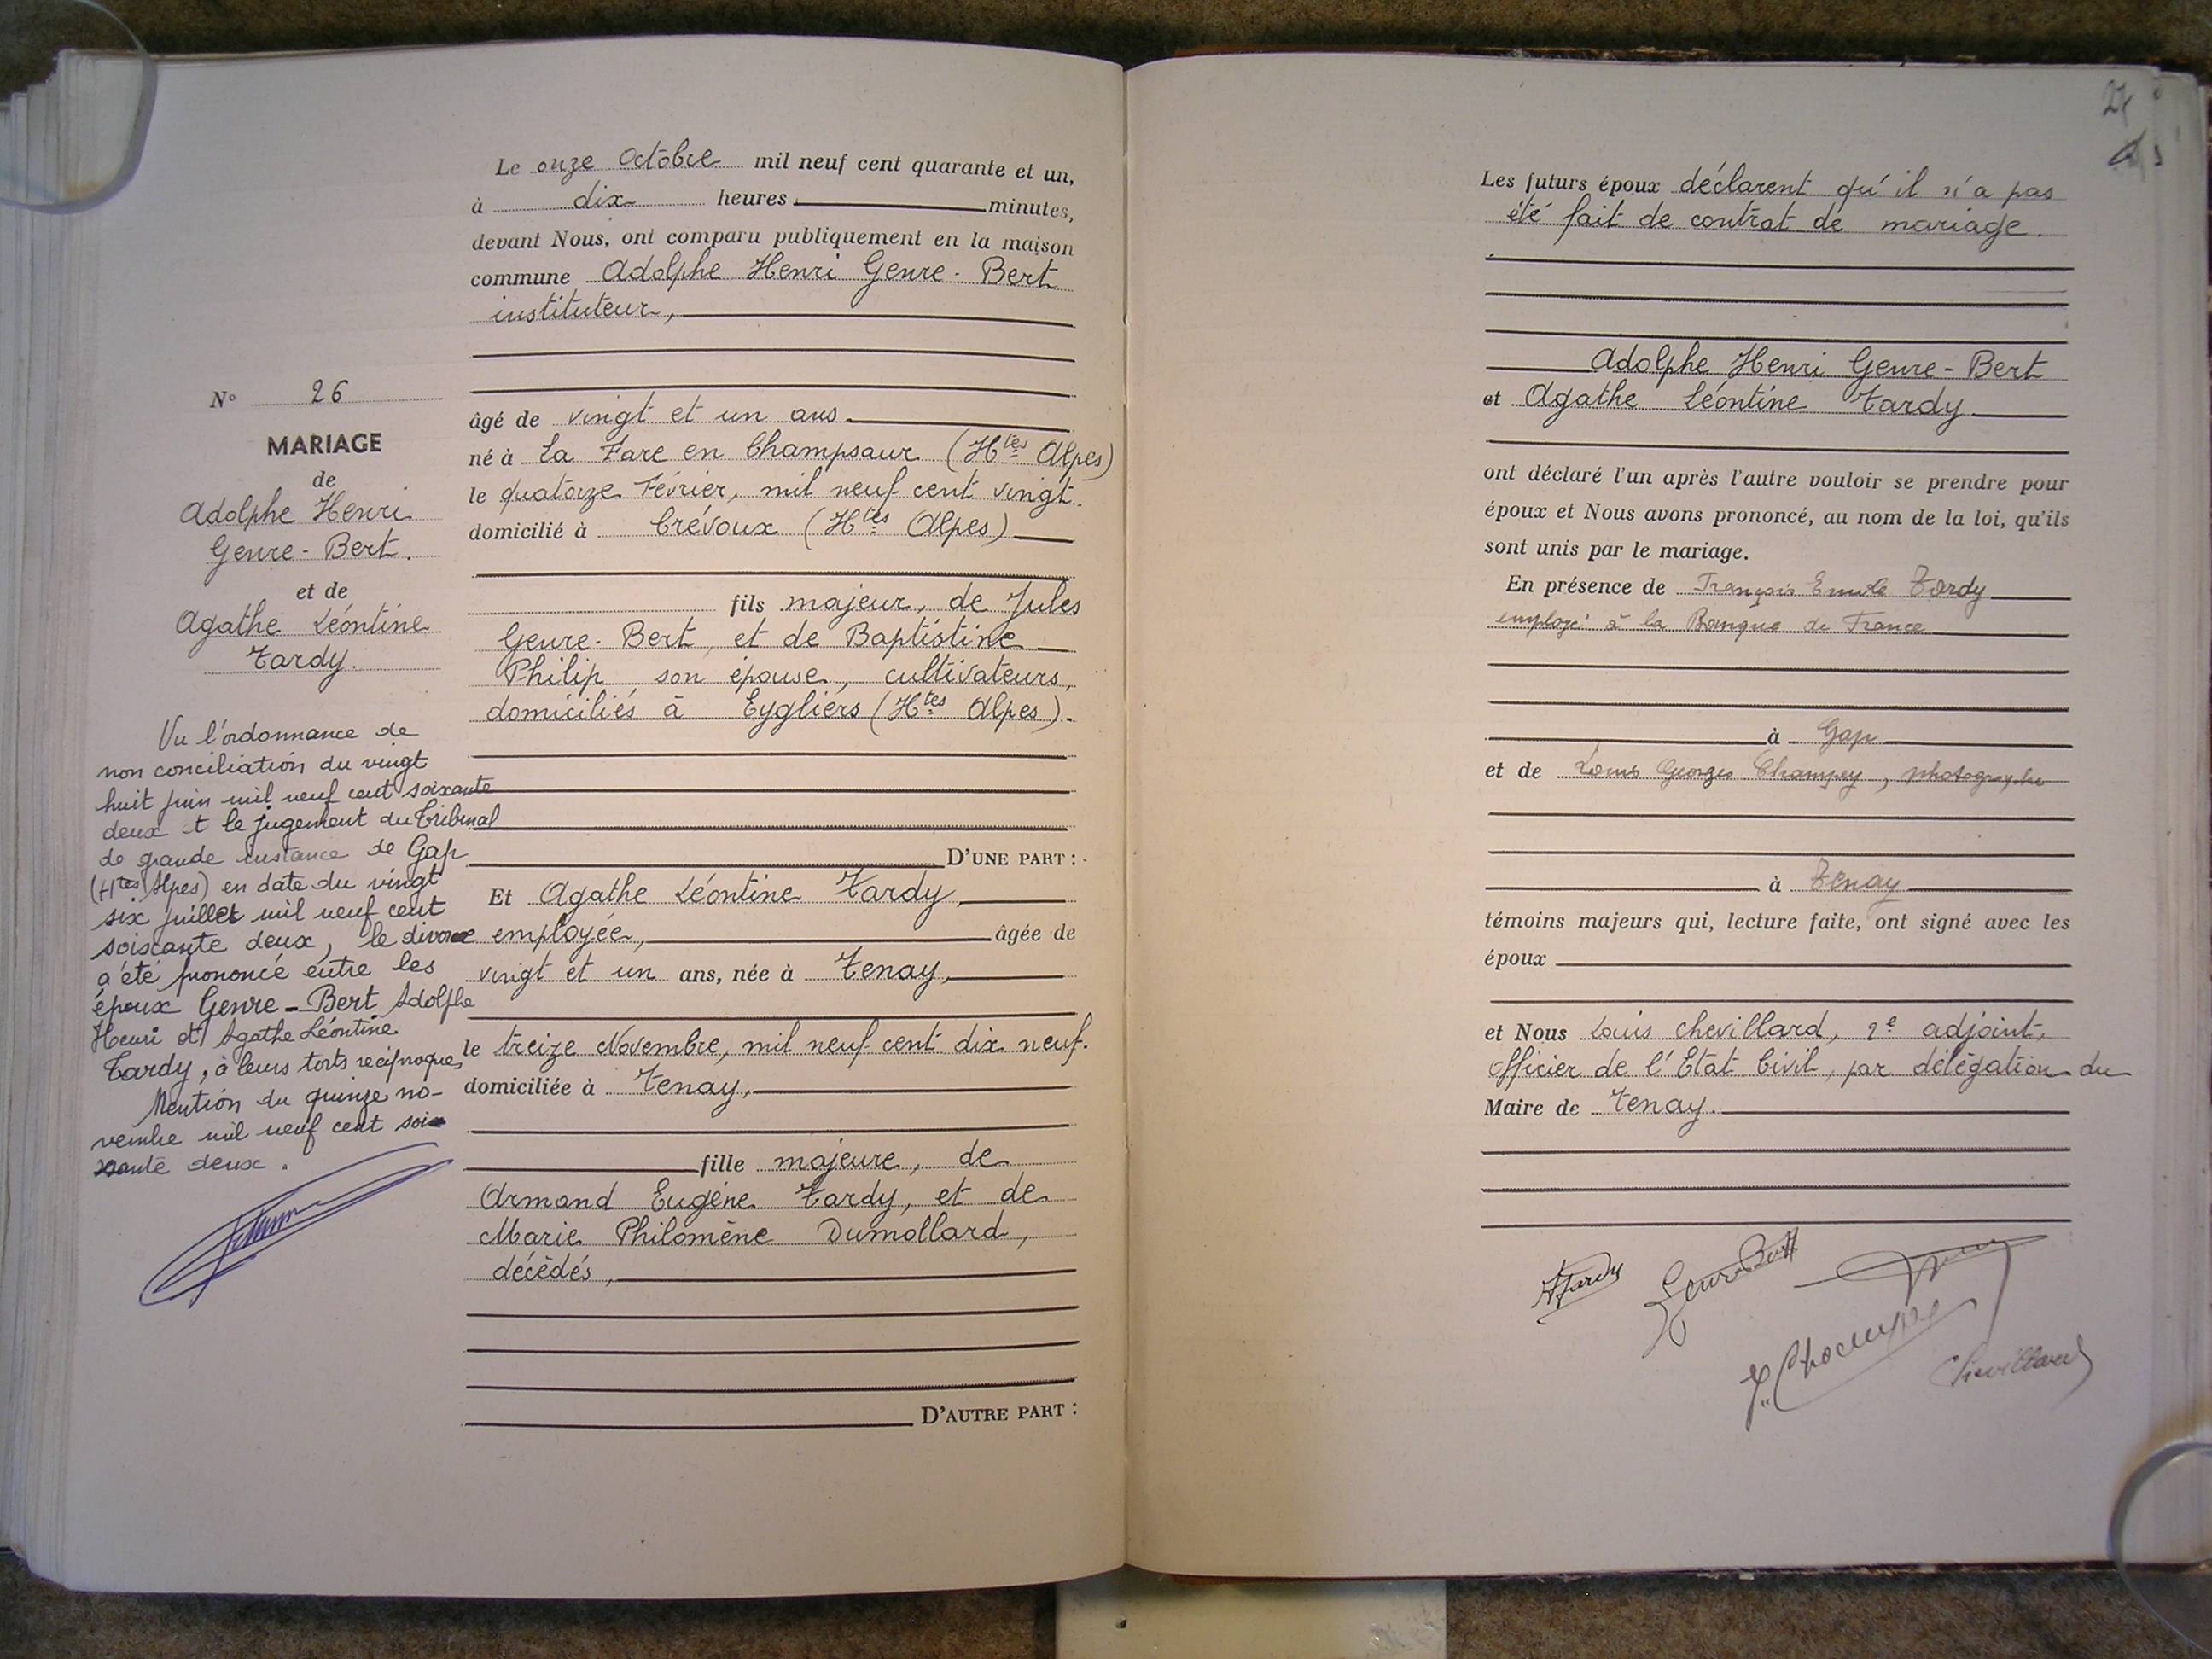 N° 26
MARIAGE
de
Adolphe Henri
Genre-Bert.
et de
Agathe Léontine
Tardy.
Vu l'ordonnance de
non conciliation du vingt
huit juin mil neuf cent soixante
deux et le jugement du Tribunal
de grande instance de Gap
(Htes Alpes) en date du vingt
six juillet mil neuf cent
soixante deux, le divorce
a été prononcé entre les
époux Genre-Bert Adolphe
Henri et Agathe Léontine
Tardy, à leurs torts réciproques
Mention du quinze no-
vembre mil neuf cent soi-
xante deux.
Le onze Octobre mil neuf cent quarante et un,
à dix heures minutes,
devant Nous, ont comparu publiquement en la maison
commune Adolphe Henri Genre-Bert
instituteur,
âgé de vingt et un ans
né à La Fare en Champsaur (Htes Alpes)
le quatorze Février, mil neuf cent vingt.
domicilié à Crévoux (Htes Alpes)
fils majeur, de Jules
Genre-Bert, et de Baptistine
Philip, son épouse, cultivateurs,
domiciliés à Eygliers (Htes Alpes).
D'UNE PART :
Et Agathe Léontine Tardy,
employée, âgée de
vingt et un ans, née à Tenay,
le treize Novembre, mil neuf cent dix neuf.
domiciliée à Tenay,
fille majeure, de
Armand Eugène Tardy, et de
Marie Philomène Dumollard,
décédés,
D'AUTRE PART :
27
Les futurs époux déclarent qu'il n'a pas
été fait de contrat de mariage.
Adolphe Henri Genre-Bert
et Agathe Léontine Tardy
ont déclaré l'un après l'autre vouloir se prendre pour
époux et Nous avons prononcé, au nom de la loi, qu'ils
sont unis par le mariage.
En présence de François Emile Tardy
employé à la Banque de France
à Gap
et de Louis Georges Champey, photographe
à Tenay
témoins majeurs qui, lecture faite, ont signé avec les
époux
et Nous Louis Chevillard, 2e adjoint,
Officier de l'Etat Civil, par délégation du
Maire de Tenay.
ATardy
Genre Bert
Chevillard